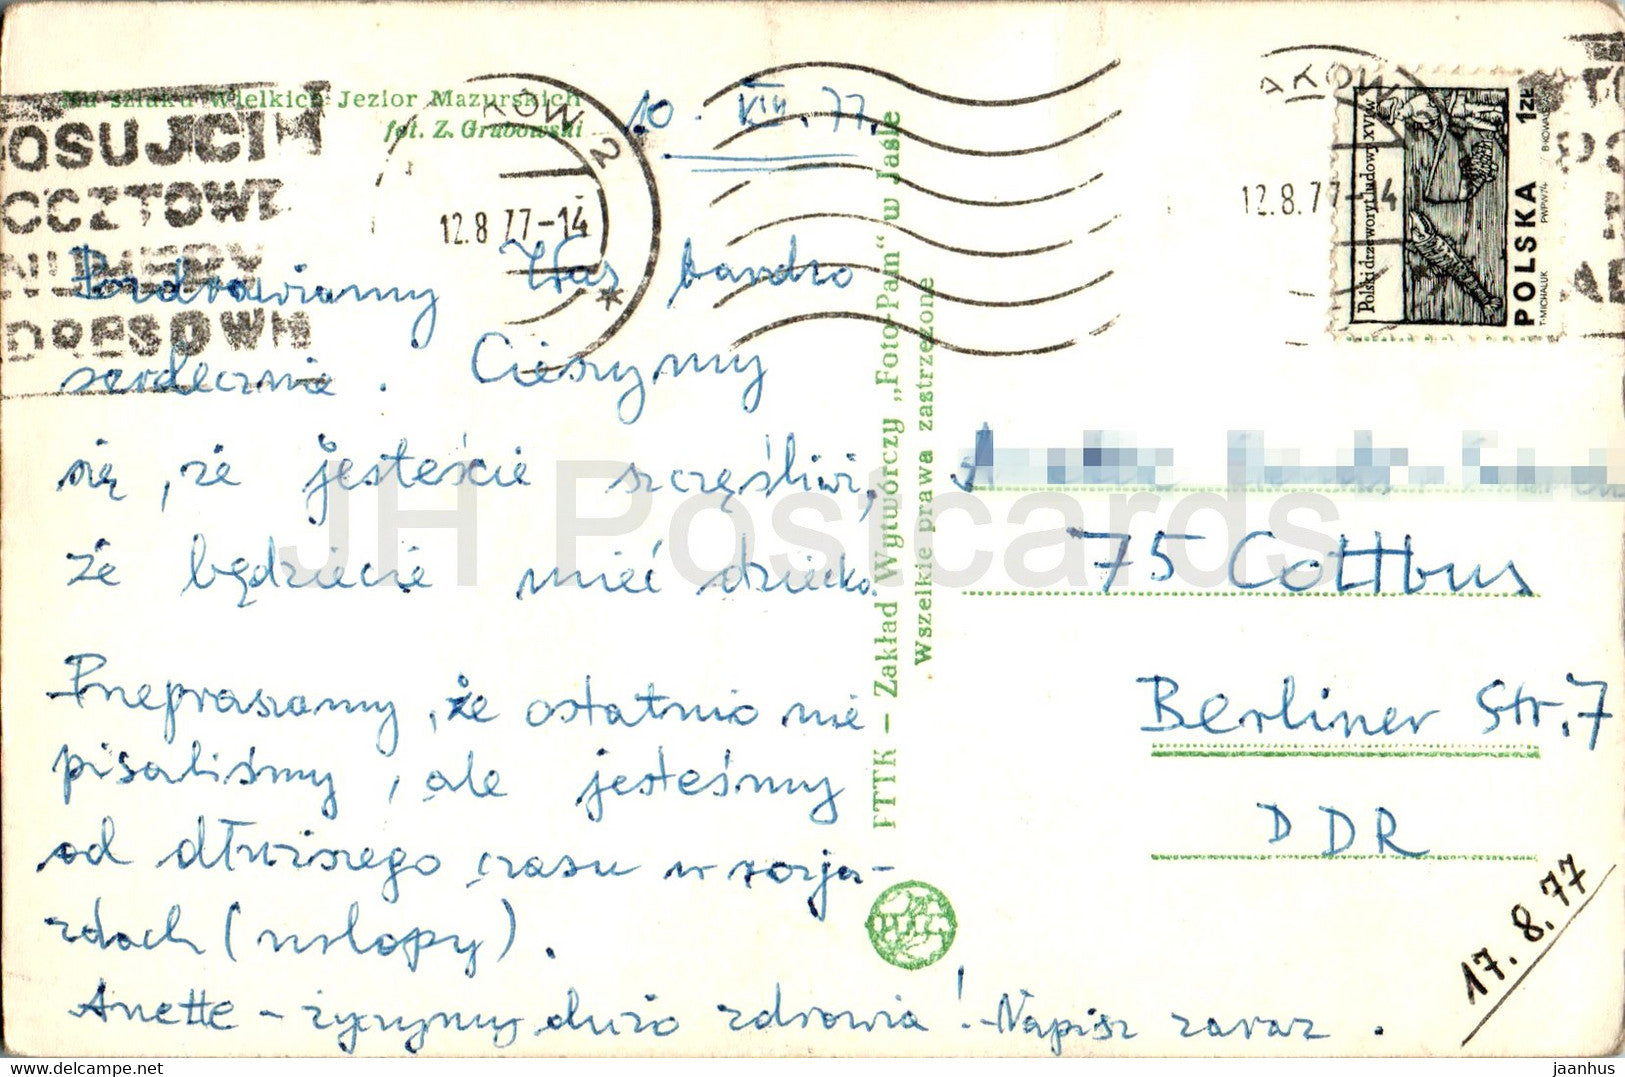 Na szlaku Wielkich Jezior Mazurskich
fot. Z. Grabowski
10. VIII. 77.
OSUJCI
OCZTOWE
NUMERY
DRESOWE
KÓW 2
12.8.77-14
*
Pozdrawiamy Was bardzo
serdecznie. Cieszymy
się, że jesteście szczęśliwi,
że będziecie mieć dziecko.
Przepraszamy, że ostatnio nie
pisaliśmy, ale jesteśmy
od dłuższego czasu w rozja-
zdach (urlopy).
Anette – życzymy dużo zdrowia! Napisz zaraz.
PTTK — Zakład Wytwórczy „Foto-Pam" w Jaśle
Wszelkie prawa zastrzeżone
PTTK
RAKÓW
12.8.77-14
Polski drzeworyt ludowy XVI w
POLSKA 1ZŁ
T·MICHALUK PWPW·74
75 Cottbus
Berliner Str. 7
DDR
17.8.77
JH Postcards
jaanhus © delcampe.net